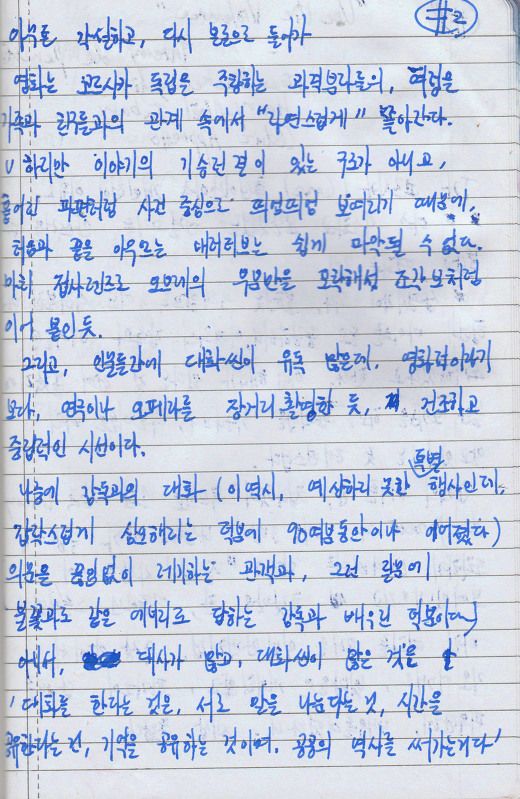 #2
아무튼 각설하고, 다시 본론으로 돌아가
영화는 코르시카 독립을 주장하는 과격분자들의, 여럿을
가족과 친구들과의 관계 속에서 "자연스럽게" 쫓아간다.
V 하지만 이야기의 기승전결이 있는 구조가 아니고,
흩어진 파편처럼 사건 중심으로 띄엄띄엄 보여지기 때문에,
처음과 끝을 아우르는 내러티브는 쉽게 파악될 수 없다.
마치 접사렌즈로 오브제의 부분만을 포착해서 조각보처럼
이어 붙인듯.
그리고, 인물들간에 대화씬이 유독 많은데, 영화적이라기
보다, 연극이나 오페라를 장거리 촬영한 듯, 건조하고
중립적인 시선이다.
나중에 감독과의 대화 (이 역시, 예상하지 못한 특별 행사인데,
갑작스럽게 실행해지는 덕분에 90여분동안이나 이어졌다)
의문을 끊임없이 제기하는 관객과, 그런 질문에
불꽃과도 같은 에너지로 답하는 감독과 배우진 덕분이다)
에서, 대사가 많고, 대화씬이 많은 것을
'대화를 한다는 것은, 서로 말을 나눈다는 것, 시간을
공유한다는 건, 기억을 공유하는 것이며, 공동의 역사를 써가는거다'